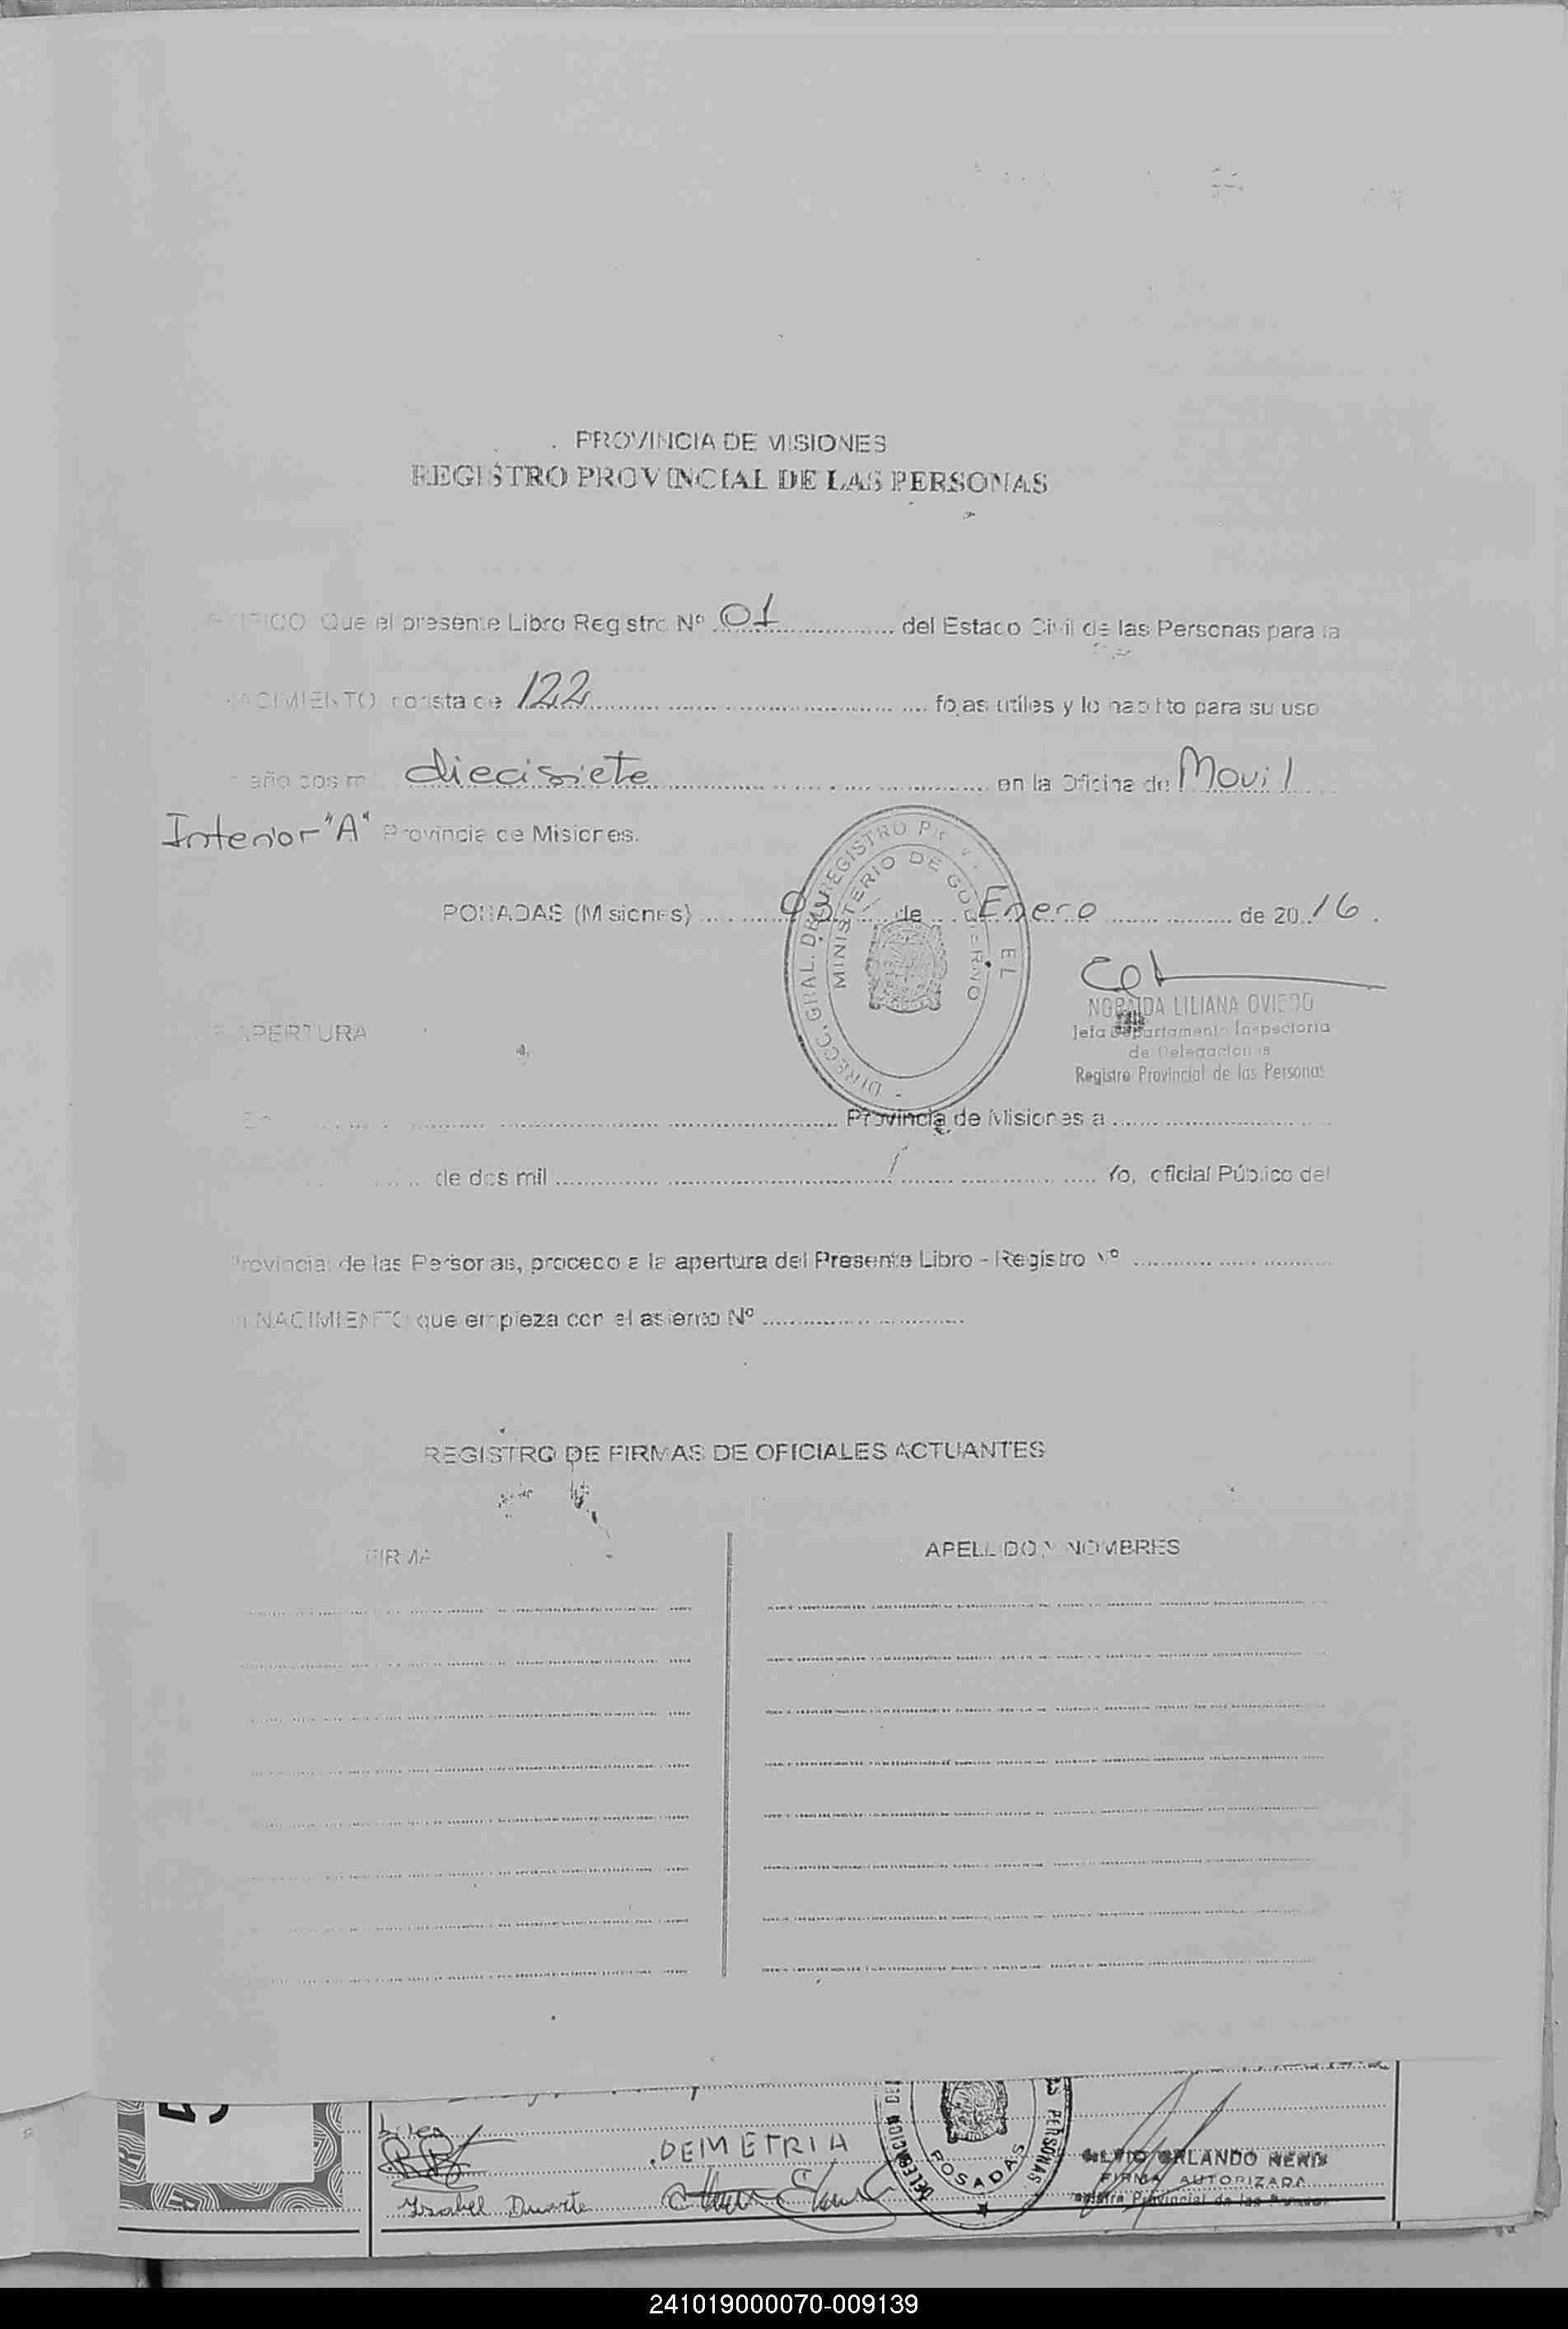 PROVINCIA DE MISIONES
REGISTRO PROVINCIAL DE LAS PERSONAS
Que el presente Libro Registro Nº 01 del Estado Civil de las Personas para la
NACIMIENTO consta de 122 fojas utiles y lo habilito para su uso
año dos mil diecisiete en la Oficina de Movil
Interior "A" Provincia de Misiones.
POSADAS (Misiones) 03 de Enero de 2016.
DIRECC. GRAL. DEL REGISTRO
MINISTERIO DE GOBIERNO
NORAIDA LILIANA OVIEDO
Jefa Departamento Inspectoria
de Delegaciones
Registro Provincial de las Personas
APERTURA
Provincia de Misiones a
de dos mil Yo, oficial Público del
Provincial de las Personas, procedo a la apertura del Presente Libro - Registro Nº
NACIMIENTO que empieza con el asiento Nº
REGISTRO DE FIRMAS DE OFICIALES ACTUANTES
FIRMA APELLIDO Y NOMBRES
DEMETRIA
Ysabel Duarte
POSADAS
PERSONAS
SILVIO ORLANDO NERIS
FIRMA AUTORIZADA
Registro Provincial de las Personas
241019000070-009139